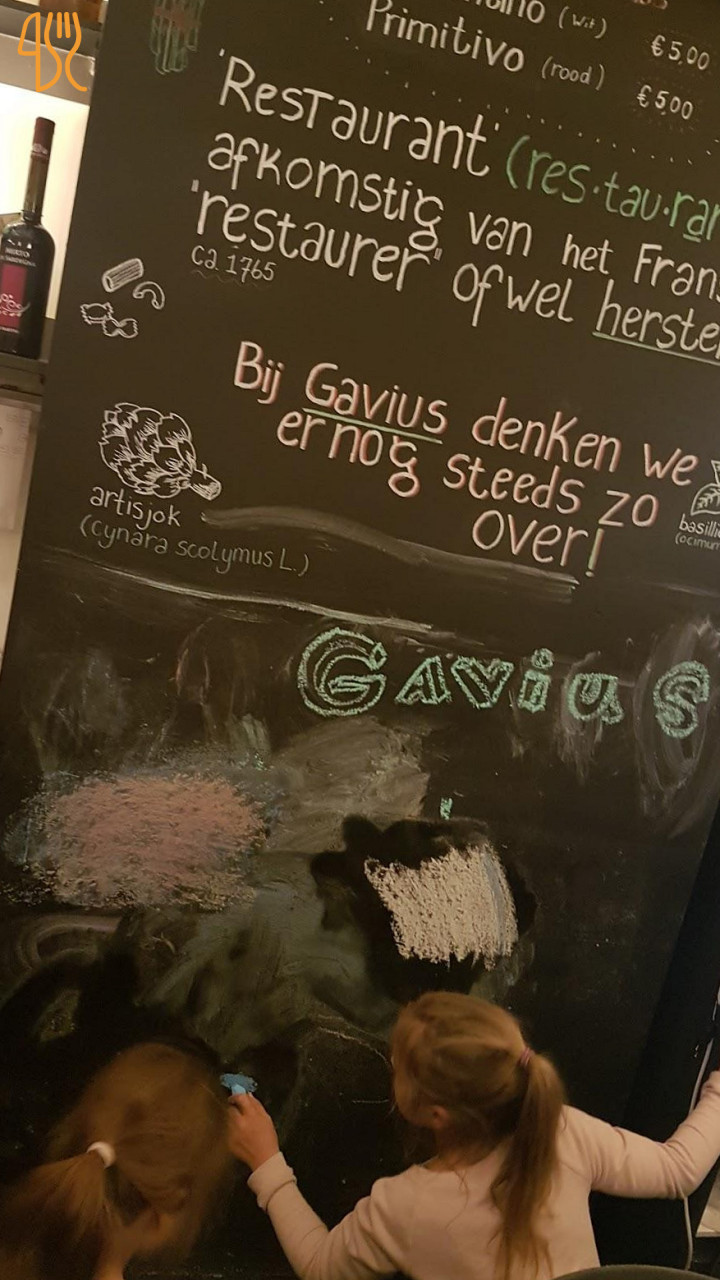 Primitivo (rood) (wit) €5,00
€5,00
'Restaurant' (res·tau·ran
afkomstig van het Frans
'restaurer" ofwel herstel
ca. 1765
Bij Gavius denken we
er nog steeds zo
over!
artisjok
(cynara scolymus L.)
Gavius